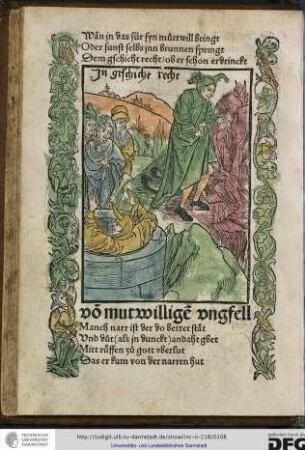 Wan jn das für syn můtwill bringt
Oder sunst selbs jnn brunnen springt
Dem gschicht recht / ob er schon erdrinckt
In gschicht recht
võ mutwilligẽ vngfell
Manch narr ist der do bettet stät
Und důt (als jn dunckt) andaht gbet
Mitt růffen zů gott überlut
Das er kum von der narren hut
http://tudigit.ulb.tu-darmstadt.de/show/inc-ii-218/0108
Universitäts- und Landesbibliothek Darmstadt
TECHNISCHE
UNIVERSITÄT
DARMSTADT
gefördert durch die
DFG